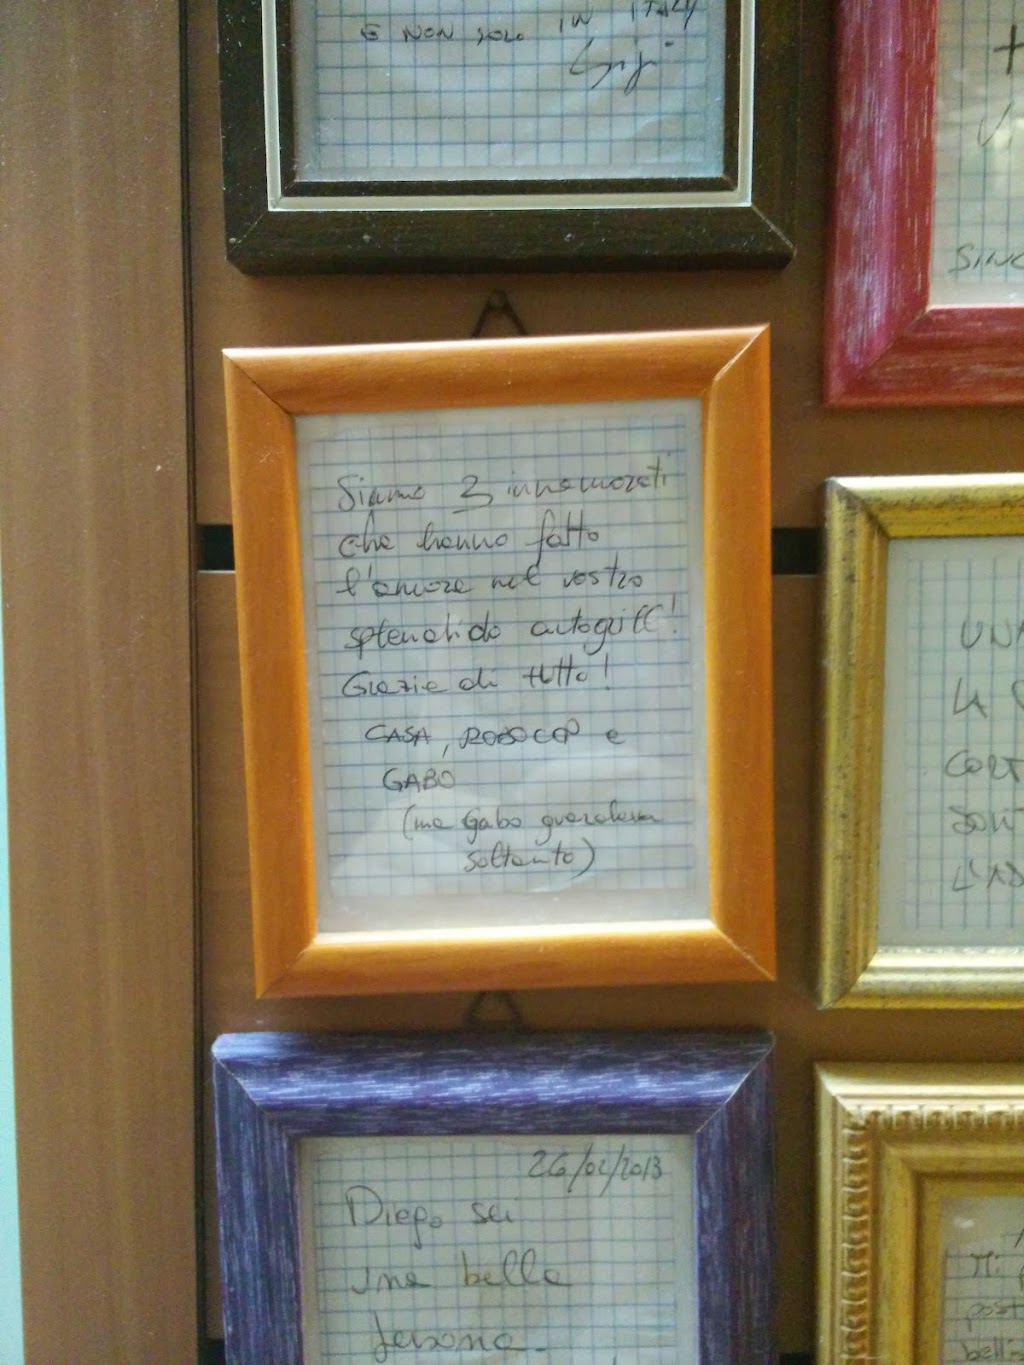 E NON SOLO IN ITALY
SINC
Siamo 3 innamorati
che hanno fatto
l'amore nel vostro
splendido autogrill!
Grazie di tutto!
CASA, ROBOCOP e
GABO
(ma Gabo guardava
soltanto)
UNA
LA
CORT
L'AD
26/02/2013
Diego sei
una bella
persona.
Mi
post
bellis